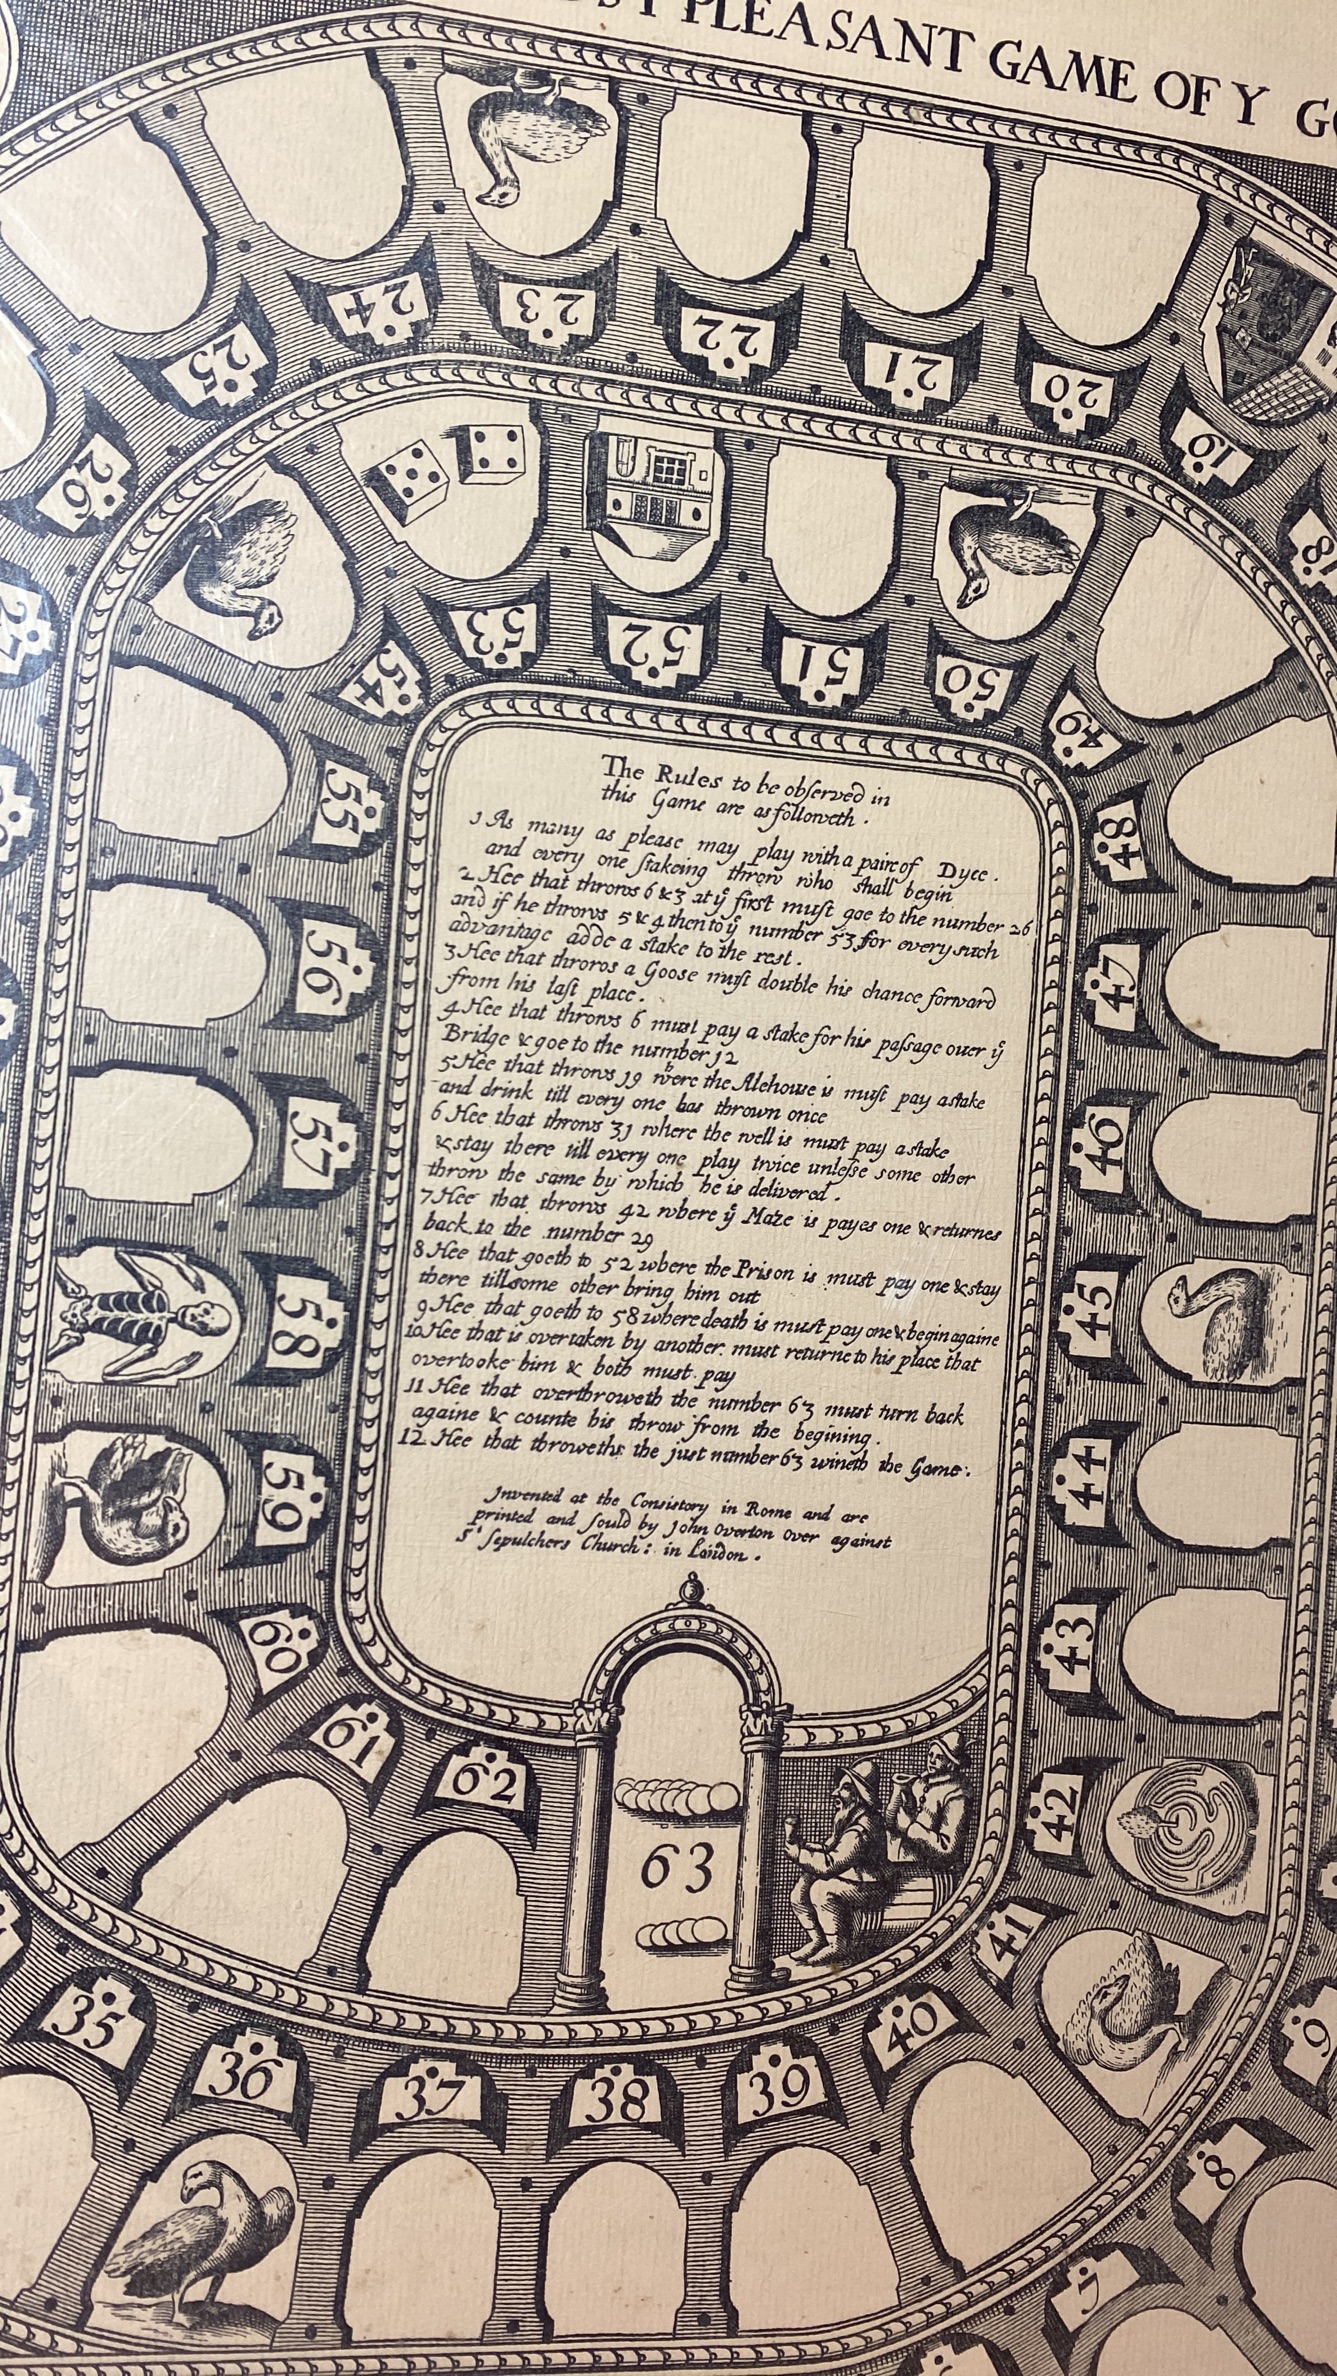 PLEASANT GAME OF Y
25
24
23
22
21
20
19
18
26
54
53
52
51
50
49
55
48
56
47
57
46
58
45
59
44
60
43
61
62
42
63
41
35
36
37
38
39
40
9
8
The Rules to be obſerved in
this Game are as followeth .
1 As many as please may play with a paire of Dyce .
and every one ſtakeing throw who shall begin
2 Hee that throws 6 & 3 at yͤ first muſt goe to the number 26
and if he throws 5 & 4 then to yͤ number 53 for every such
advantage adde a stake to the rest .
3 Hee that throws a Goose muſt double his chance forward
from his laſt place .
4 Hee that throws 6 must pay a stake for his paſsage over yͤ
Bridge & goe to the number 12
5 Hee that throws 19 where the Alehouse is muſt pay a stake
and drink till every one has thrown once
6 Hee that throws 31 where the well is must pay a stake
& stay there till every one play twice unleſse some other
throw the same by which he is delivered .
7 Hee that throws 42 where yͤ Maze is payes one & returnes
back to the number 29
8 Hee that goeth to 52 where the Prison is must pay one & stay
there till some other bring him out
9 Hee that goeth to 58 where death is must pay one & begin againe
10 Hee that is overtaken by another must returne to his place that
overtooke him & both must pay
11 Hee that overthroweth the number 63 must turn back
againe & counte his throw from the begining .
12 Hee that throweth the just number 63 wineth the Game .
Invented at the Consistory in Rome and are
printed and ſould by John Overton over against
Sᵗ Sepulchers Church : in London .